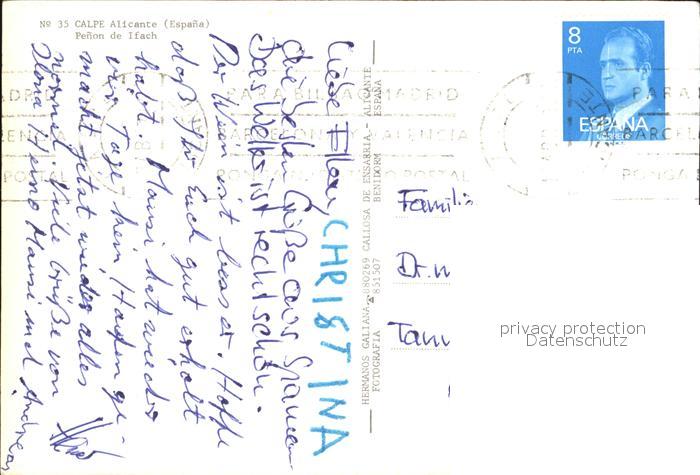 Nº 35 CALPE Alicante (España)
Peñon de Ifach
Liebe Eltern,
CHRISTINA
die besten Grüße aus Spanien.
Das Wetter ist recht schön.
Der Wein ist besser. Hoffe
daß Ihr Euch gut erholt
habt. Mausi hat wieder
vier Tage kein
macht jetzt wieder alles
normal. Viele Grüße von
Ilona Heino Mausi und Andreas
HERMANOS GALIANA 880269 CALLOSA DE ENSARRIA.- ALICANTE
FOTOGRAFIA 851507 BENIDORM ESPAÑA
8
PTA
ESPAÑA
CORREOS
PARA BILBAO MADRID
BARCELONA Y VALENCIA
PONGA DISTRITO POSTAL
PARA
BARCEL
PONGA
Famili
Dr.
Tann
privacy protection
Datenschutz